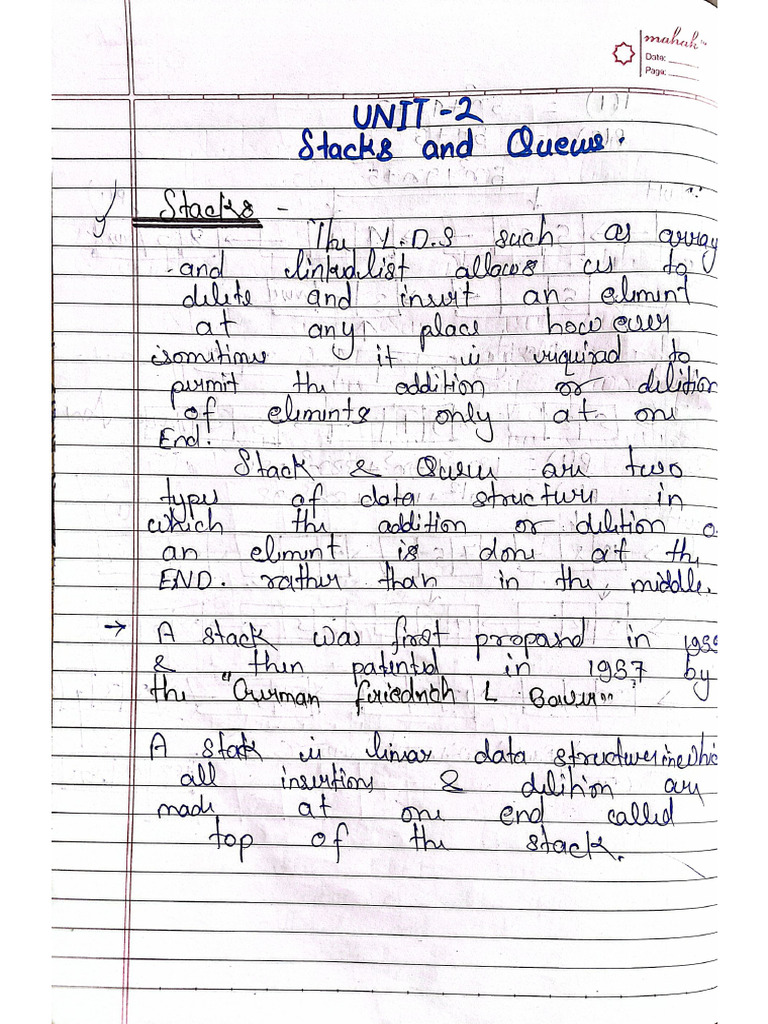 mahak
Date:
Page:
UNIT-2
Stacks and Queues.
Stacks -
The L.D.S such as array
and linkedlist allows us to
delete and insert an element
at any place however
sometimes it is required to
permit the addition or deletion
of elements only at one
End.
Stack & Queue are two
types of data structure in
which the addition or deletion o
an element is done at the
END. rather than in the middle.
→ A stack was first proposed in
& then patented in 1957 by
the "German Friedrich L Bauer"
A stack is linear data structure in whic
all insertions & delition are
made at one end called
top of the stack.